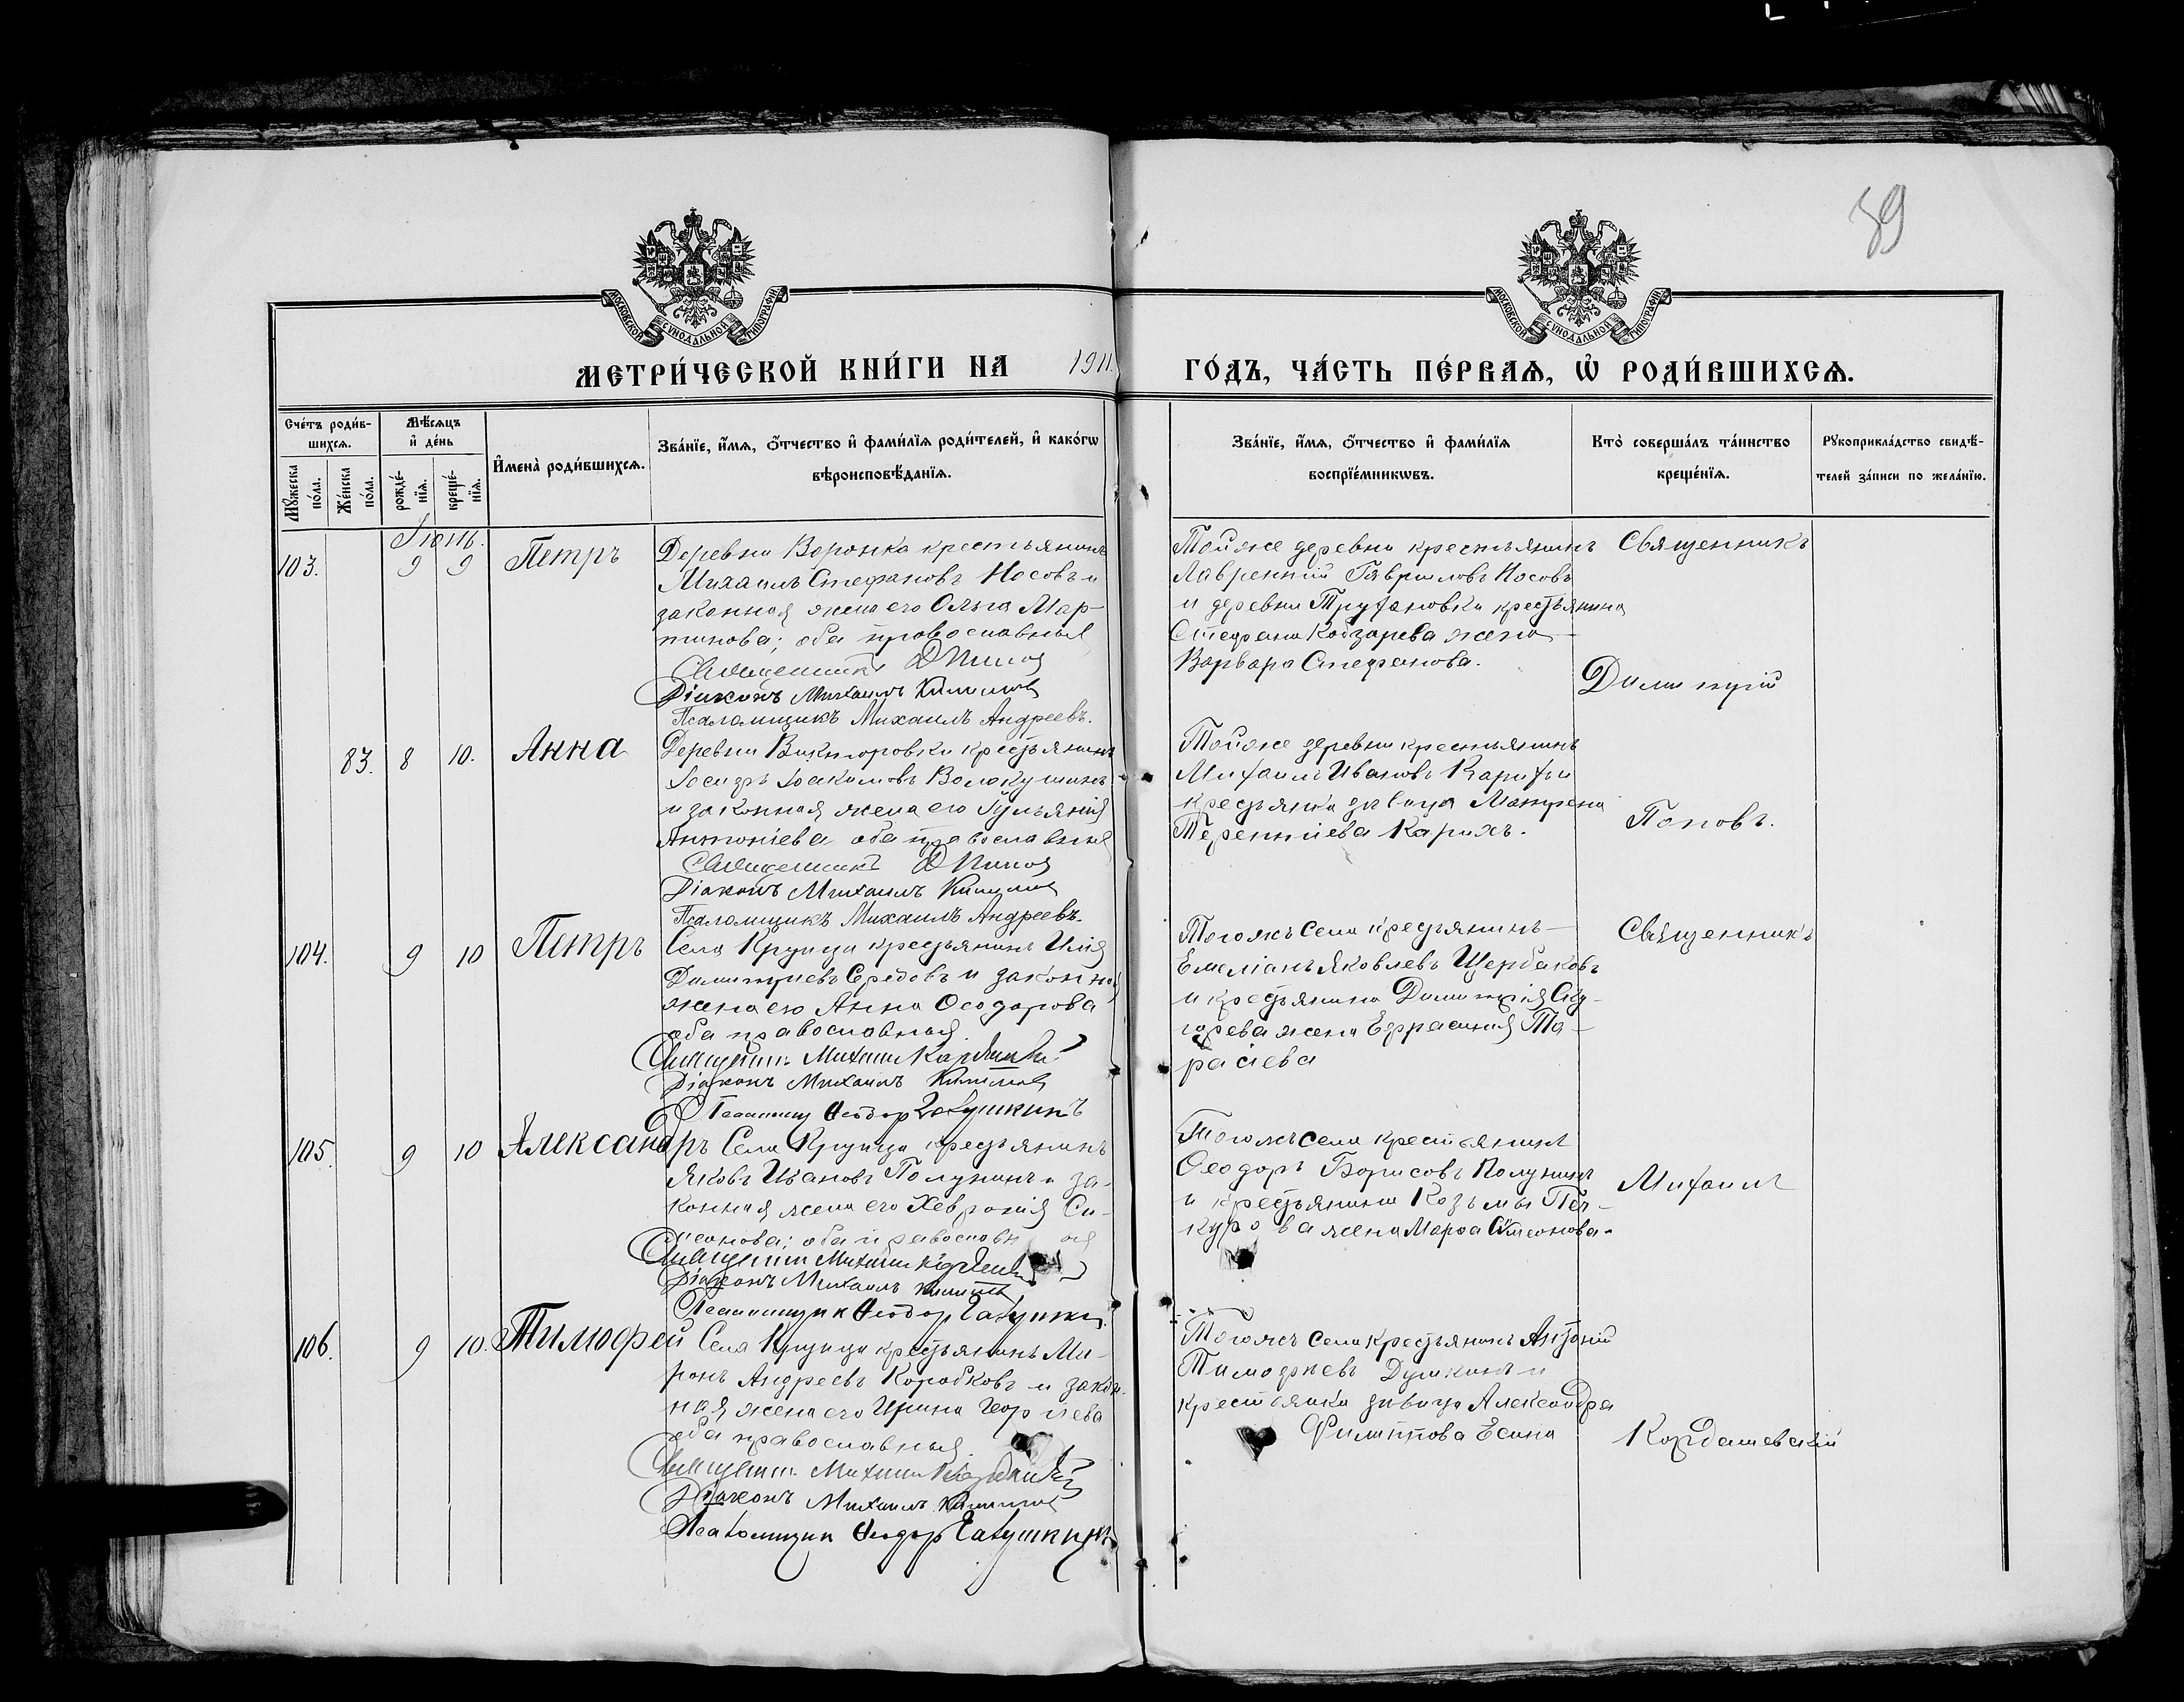 89
МОСКОВСКОЙ СѴНОДАЛЬНОЙ ТИПОГРАФІИ
МОСКОВСКОЙ СѴНОДАЛЬНОЙ ТИПОГРАФІИ
МЕТРИ́ЧЕСКОЙ КНИ́ГИ НА 1911 ГО́ДЪ, ЧА́СТЬ ПЕ́РВАѦ, Ѡ҆ РОДИ́ВШИХСѦ.
Сче́тъ роди́в-
шихсѧ.
Мꙋжеска по́ла.
Же́нска по́ла.
Мѣ́сѧцъ и҆ де́нь
рожде́-нїѧ.
креще́-нїѧ.
И҆мена̀ роди́вшихсѧ.
Зва́нїе, и҆́мѧ, ѻ҆́тчество и҆ фами́лїѧ роди́телей, и҆ како́гѡ
вѣроисповѣ́данїѧ.
Зва́нїе, и҆́мѧ, ѻ҆́тчество и҆ фами́лїѧ
воспрїе́мникѡвъ.
Кто̀ соверша́лъ та́инство
креще́нїѧ.
Рꙋкоприкла́дство свидѣ́-
телей за́писи по жела́нїю.
Іюнь.
103. 9 9 Петръ
Деревни Воронка крестьянинъ
Михаилъ Стефановъ Носовъ и
законная жена его Ольга Мар-
тинова; оба православныя
Священникъ Д Попов
Діаконъ Михаилъ
Псаломщикъ Михаилъ Андреевъ.
Той же деревни крестьянинъ
Лаврентій Гавриловъ Носовъ
и деревни Труфановки крестьянина
Стефана Кобзарева жена
Варвара Стефанова.
Священникъ
Димитрій
Поповъ.
83. 8 10. Анна
Деревни Викторовки крестьянинъ
Іосифъ Іоакимовъ Волокушинъ
и законная жена его Іульянія
Антоніева оба православныя
Священникъ Д Попов
Діаконъ Михаилъ
Псаломщикъ Михаилъ Андреевъ.
Той же деревни крестьянинъ
Михаилъ Ивановъ Карихъ и
крестьянка девица Матрена
Терентіева Карихъ.
104. 9 10 Петръ
Села Крупца крестьянинъ Илія
Димитріевъ Середовъ и законная
жена его Анна Ѳеодорова
оба православныя.
Священник Михаил Кордашевскій
Діаконъ Михаилъ
Псаломщ Ѳеодор
Того жъ села крестьянинъ
Емеліанъ Яковлевъ Щербаковъ
и крестьянина Димитрія
жена Евфрасинія Та-
расіева
Священникъ
Михаилъ
Кордашевскій
105. 9 10 Александръ
Села Крупца крестьянинъ
Яковъ Ивановъ Полунинъ и за-
конная жена его Хевронія Си-
меонова; оба православныя
Священник Михаил Кордашевскій
Діаконъ Михаилъ
Псаломщик Ѳеодор
Того жъ села крестьянинъ
Ѳеодоръ Борисовъ Полунинъ
и крестьянина Козьмы
жена Марѳа Симеонова.
106. 9 10. Тимофей
Села Крупца крестьянинъ Ми-
ронъ Андреевъ Коробковъ и закон-
ная жена его Ирина Георгіева
оба православныя.
Священник Михаил Кордашевскій
Діаконъ Михаилъ
Псаломщик Ѳеодор
Того жъ села крестьянинъ Антоній
Тимофеевъ Душкинъ и
крестьянка девица Александра
Филиппова Есина